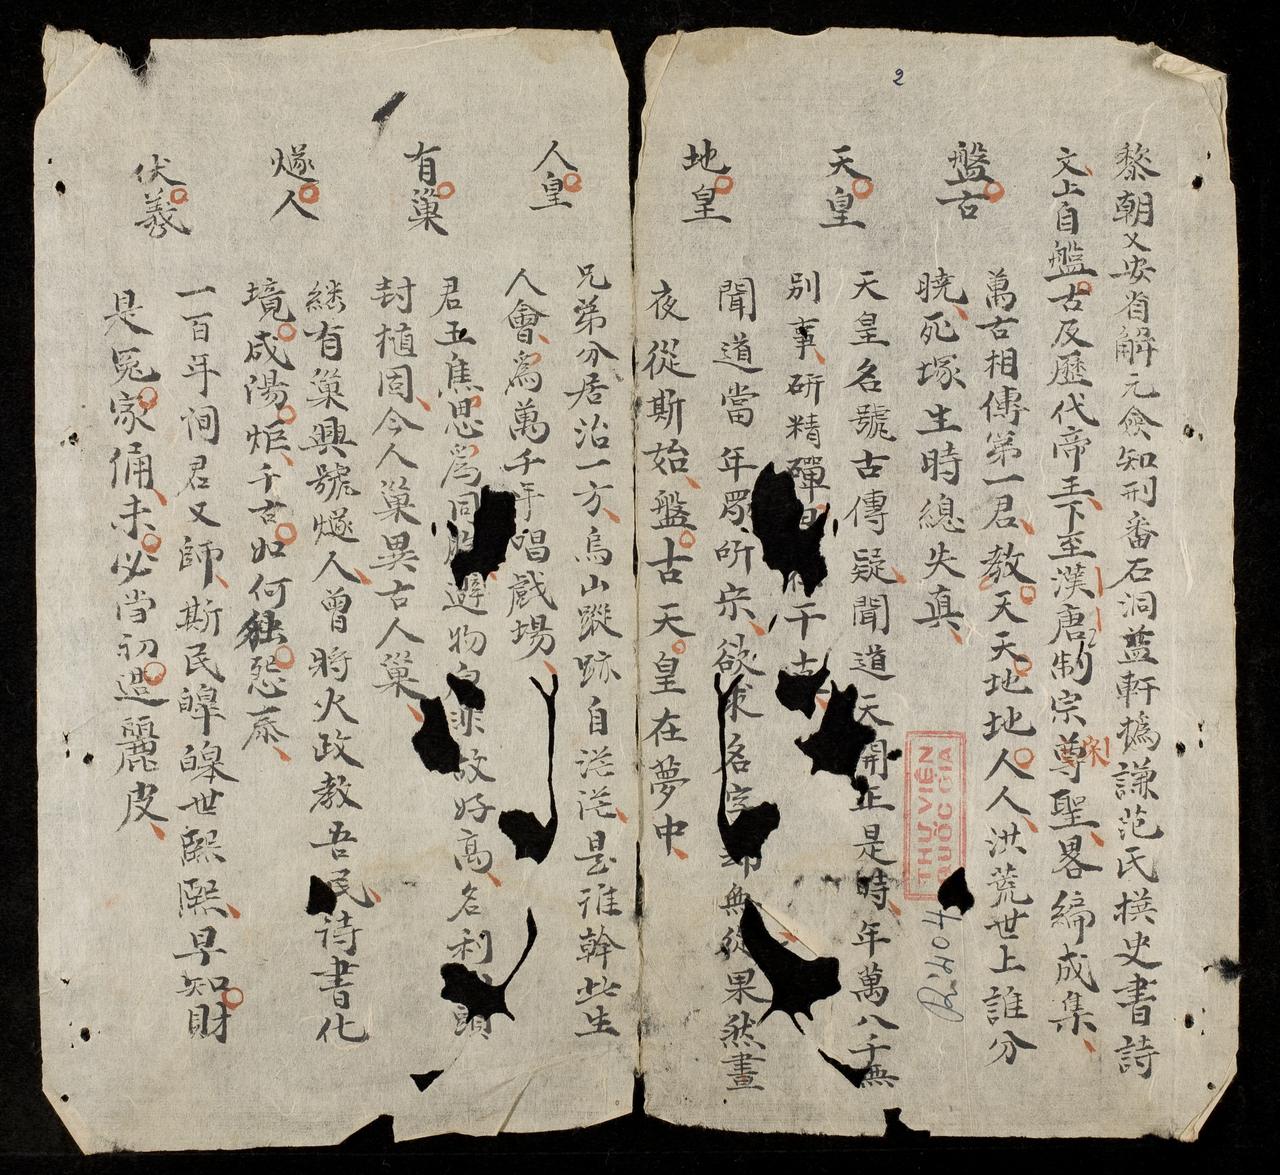 2
黎朝乂安省解元僉知刑番石洞藍軒撝謙范氏撰史書詩
文上自盤古及歷代帝王下至漢唐制宗尊聖畧編成集
盤古
萬古相傳第一君教天天地地人人洪荒世上誰分
曉死塚生時總失真
天皇
天皇名號古傳疑聞道天開正是時年萬八千無
別事研精殫 千古
地皇
聞道當年眾所宗欲求名字却無從果然晝
夜從斯始盤古天皇在夢中
人皇
兄弟分居治一方烏山蹤跡自茫茫是誰幹此生
人會爲萬千年唱戲場
有巢
君王焦思爲同胞避物 非故好高名利 頭
封植固今人巢異古人巢
燧人
繼有巢興號燧人曾將火政教吾民詩書化
境咸陽炬千古如何獨怨秦
伏羲
一百年間君又師斯民皞皞世熙熙早知財
是冤家俑未必當初造麗皮
THƯ VIỆN
QUỐC GIA
R.404